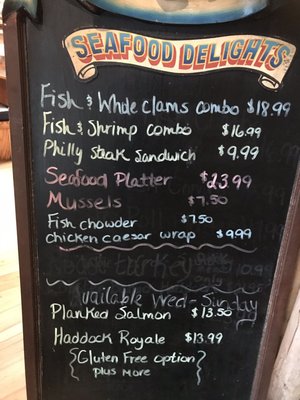 SEAFOOD DELIGHTS
Fish & Whole clams combo $18.99
Fish & Shrimp combo $16.99
Philly steak Sandwich $9.99
Seafood Platter $23.99
Mussels $7.50
Fish chowder $7.50
chicken caesar wrap $9.99
turkey
Available Wed-Sunday
Planked Salmon $13.50
Haddock Royale $13.99
{Gluten Free option}
Plus more